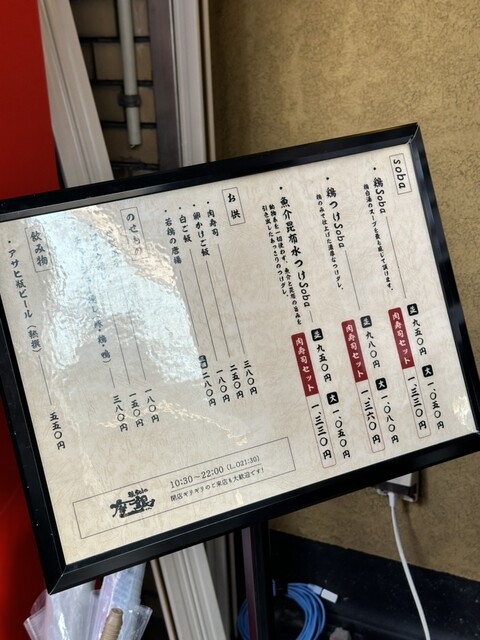 soba
・鶏soba
鶏白湯のスープを最も感じて頂けます。
正 九五〇円
大 一、〇五〇円
肉寿司セット 一、三三〇円
・鶏つけSoba
鶏のみで仕上げた濃厚なつけダレ。
正 九八〇円
大 一、〇八〇円
肉寿司セット 一、三六〇円
・魚介昆布水つけSoba
動物系を一切使わず、魚介と昆布の旨みを
引き出したあっさりのつけダレ。
正 九五〇円
大 一、〇五〇円
肉寿司セット 一、三三〇円
お供
・肉寿司 三八〇円
・卵かけご飯 二五〇円
・白ご飯 一八〇円
・若鶏の唐揚 二八〇円
のせ
一八〇円
一五〇円
三八〇円
飲み物
・アサヒ瓶ビール(熟撰) 五五〇円
10:30～22:00 (L.O21:30)
閉店ギリギリのご来店も大歓迎です!